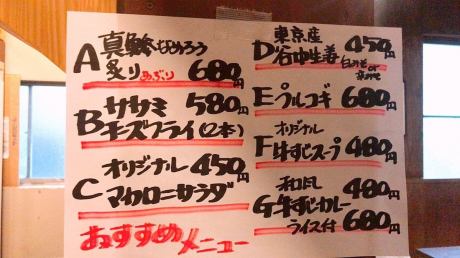 A 真鯵なめろう
炙り あぶり 680円
B ササミ 580円
チーズフライ(2本)
C オリジナル 450円
マカロニサラダ
おすすめメニュー
東京産 450円
D 谷中生姜
E プルコギ 680円
オリジナル
F 牛すじスープ 480円
和風 480円
G 牛すじカレー
ライス付 680円